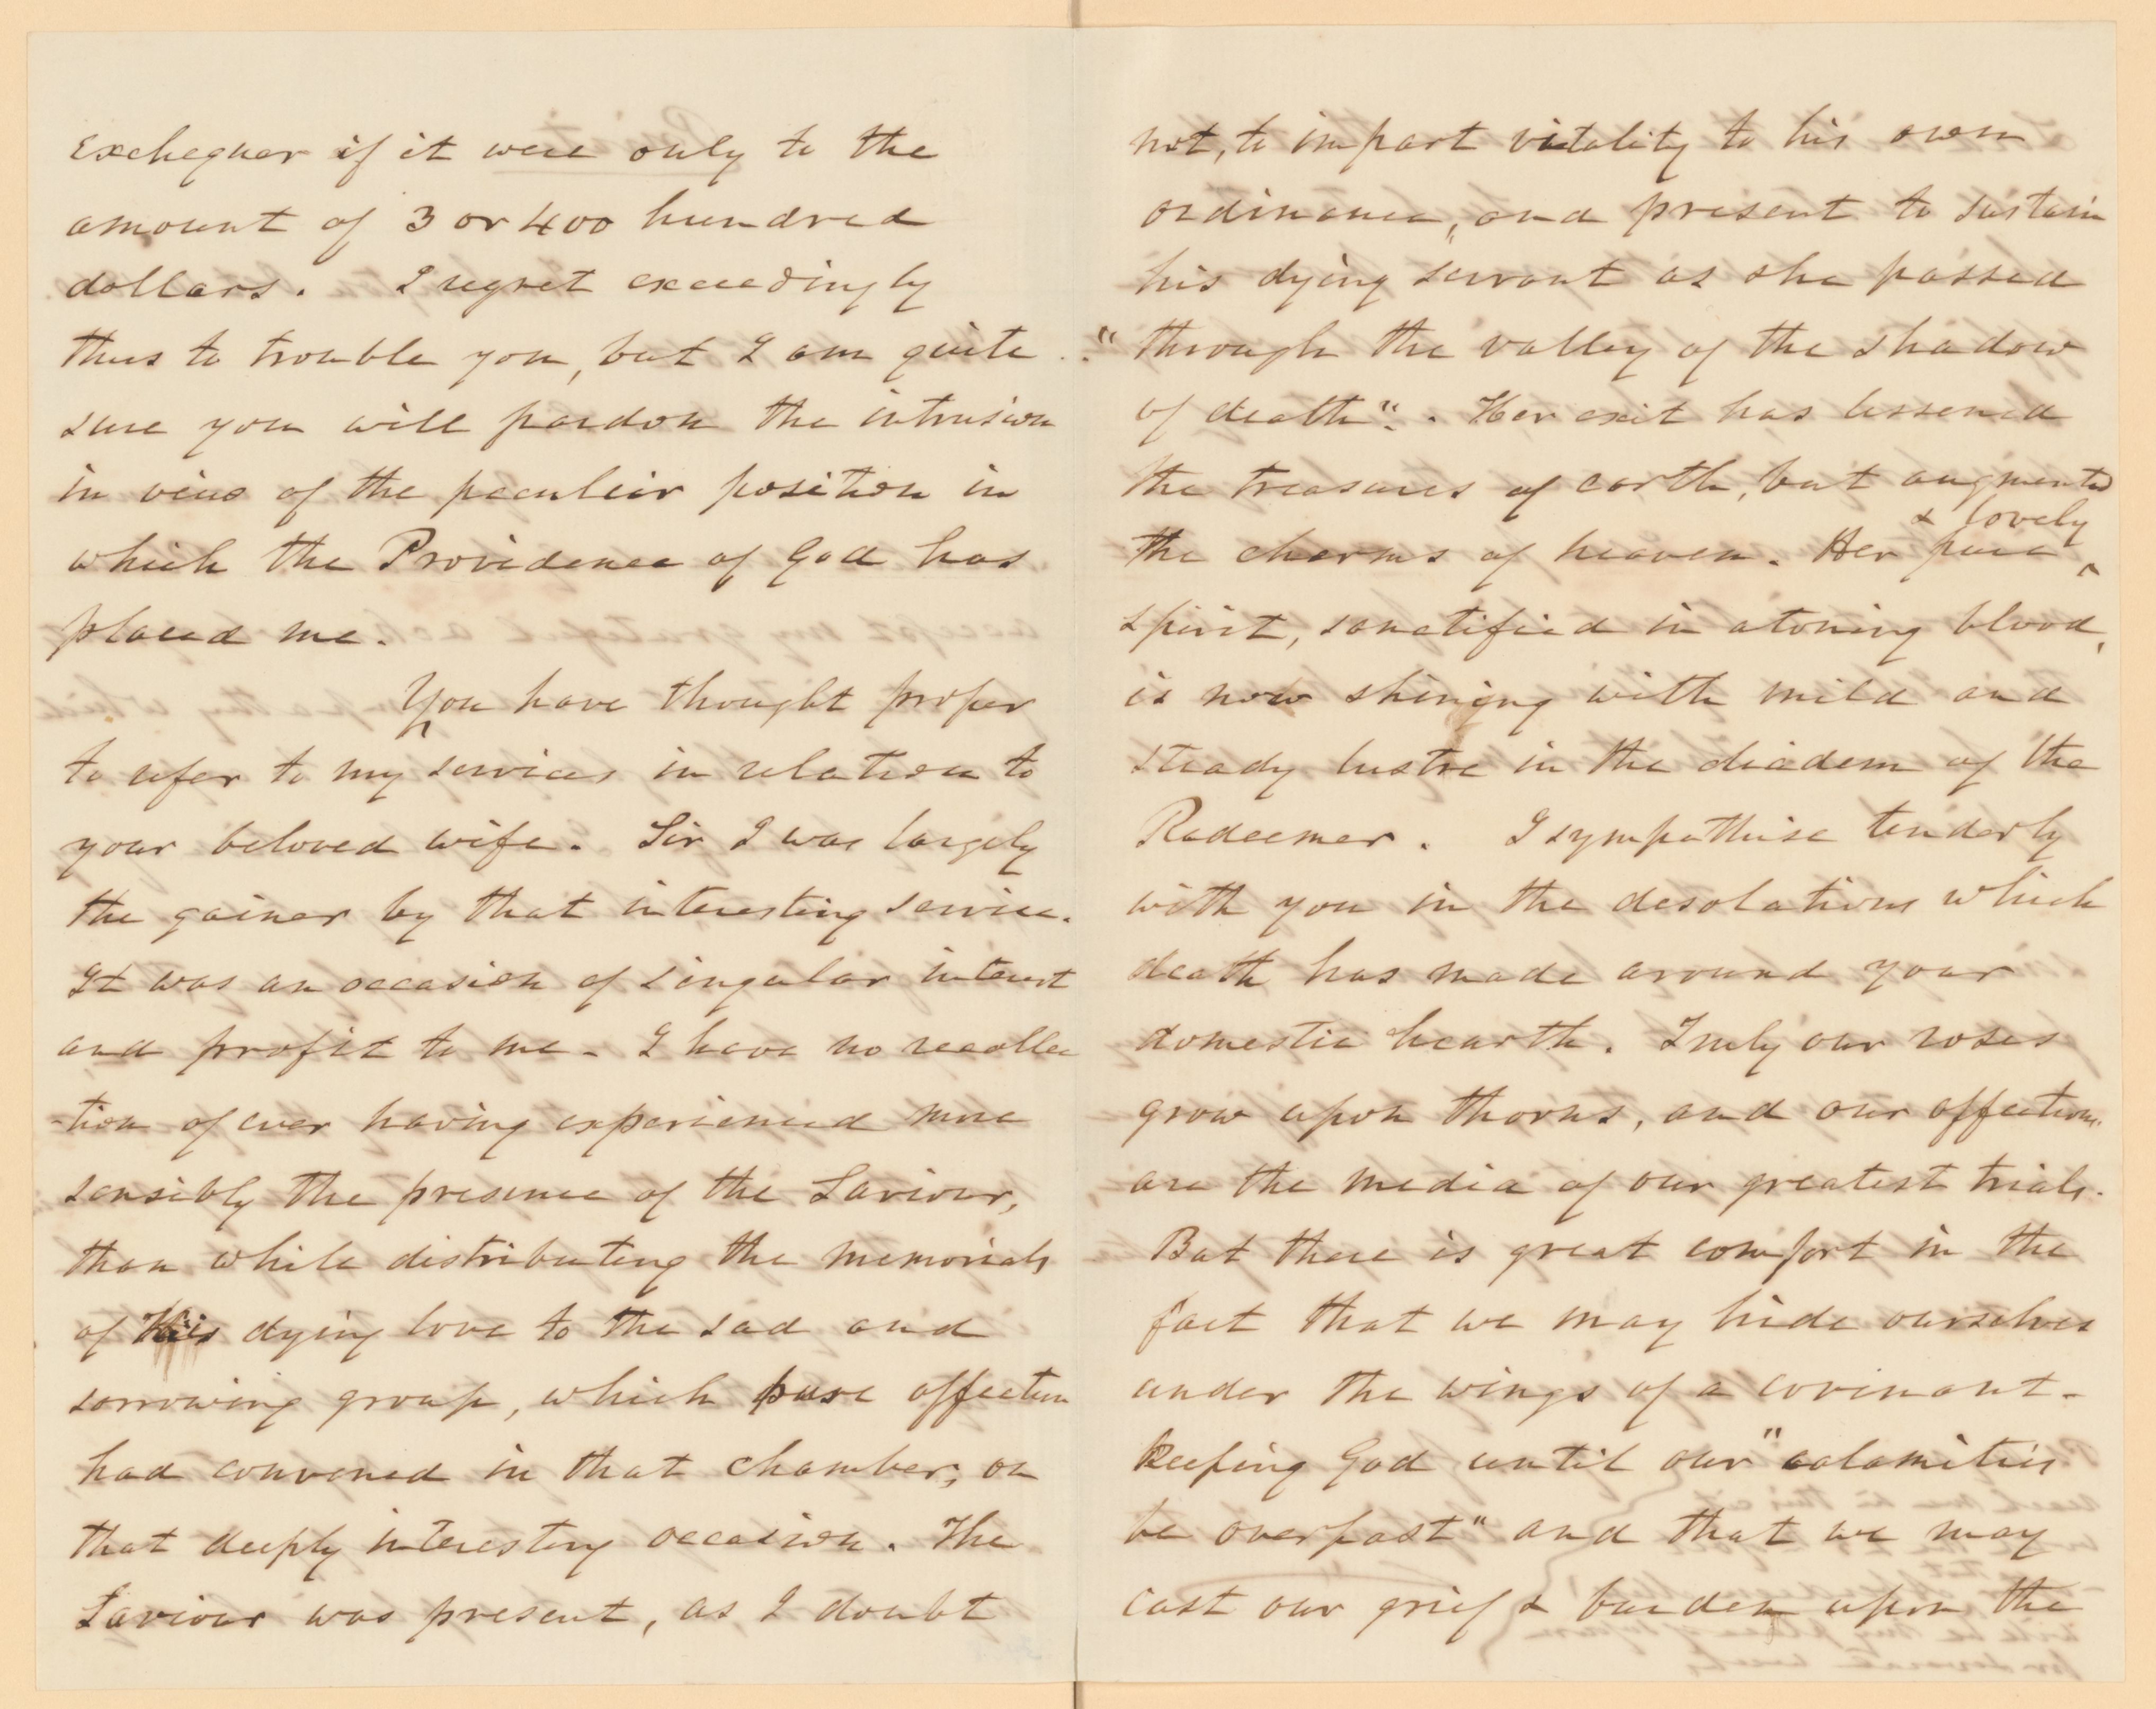 Exchequer if it were only to the
amount of 3 or 400 hundred
dollars. I regret exceedingly
thus to trouble you, but I am quite
sure you will pardon the intrusion
in view of the peculiar position in
which the Providence of God has
placed me.
You have thought proper
to refer to my services in relation to
your beloved wife. Sir I was largely
the gainer by that interesting service.
It was an occasion of singular interest
and profit to me. I have no recollec
-tion of ever having experienced more
sensibly the presence of the Saviour,
than while distributing the memorials
of His dying love to the sad and
sorrowing group, which pure affection
had convened in that chamber, on
that deeply interesting occasion. The
Saviour was present, as I doubt
not, to impart vitality to his own
ordinance, and present to sustain
his dying servant as she passed
"through the valley of the shadow
of death". Her exit has lessened
the treasures of earth, but augmented
the charms of heaven. Her pure & lovely
spirit, sanctified in atoning blood,
is now shining with mild and
steady lustre in the diadem of the
Redeemer. I sympathise tenderly
with you in the desolations which
death has made around your
domestic hearth. Truly our roses
grow upon thorns, and our affections
are the media of our greatest trials.
But there is great comfort in the
fact that we may hide ourselves
under the wings of a covinant-
keeping God until our "calamities
be overpast" and that we may
cast our grief & burden upon the